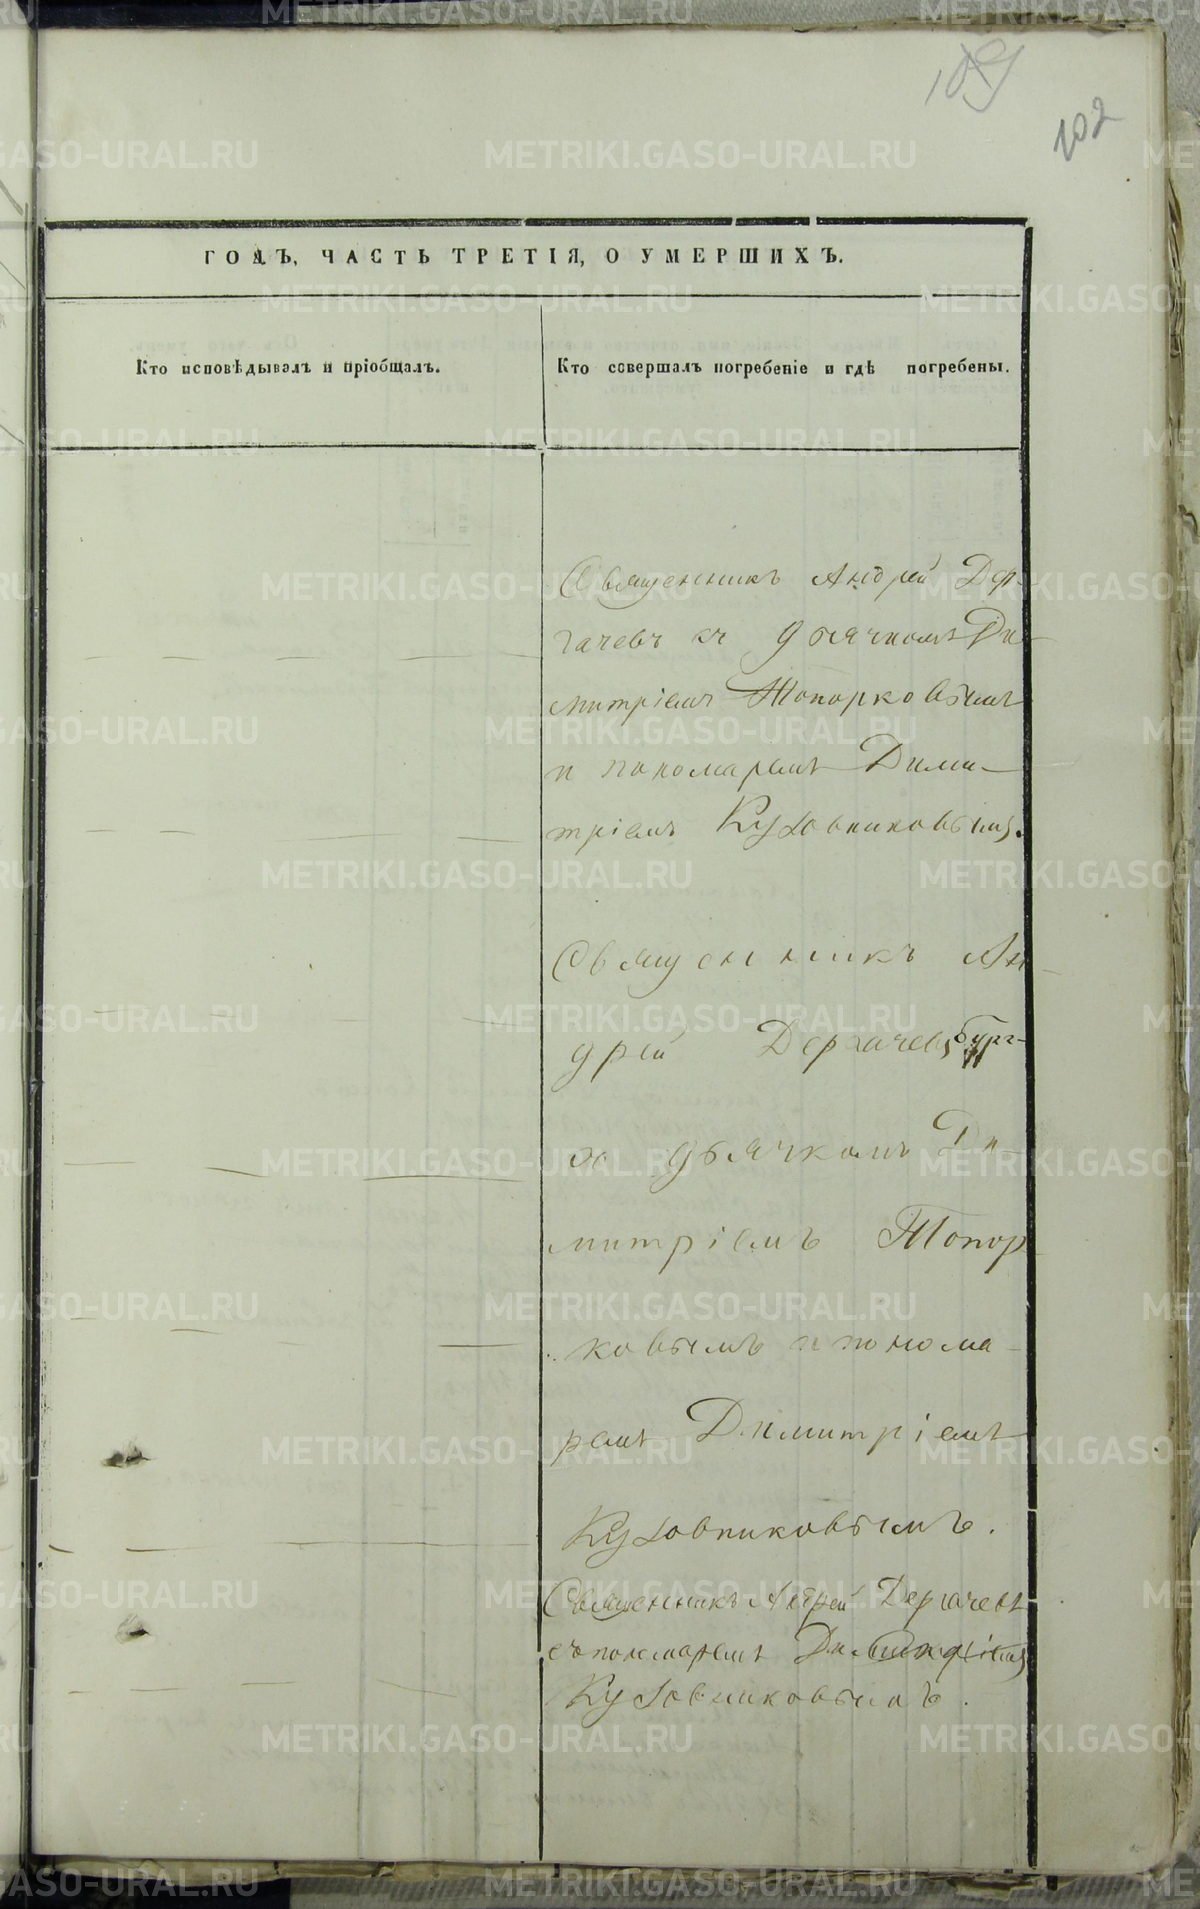 109
102
ГОДЪ, ЧАСТЬ ТРЕТІЯ, О УМЕРШИХЪ.
Кто исповѣдывалъ и пріобщалъ.
Кто совершалъ погребеніе и гдѣ погребены.
Священникъ Андрей Дер-
гачевъ съ дьячкомъ Ди-
митріемъ Топорковымъ
и пономаремъ Дими-
тріемъ Кузовниковымъ.
Священникъ Ан
дрей Дергачевъ
съ дьячкомъ Ди-
митріемъ Топор
ковымъ и понома-
ремъ Димитріемъ
Кузовниковымъ.
Священникъ Андрей Дергачевъ
съ пономаремъ Димитріемъ
Кузовниковымъ.
METRIKI.GASO-URAL.RU